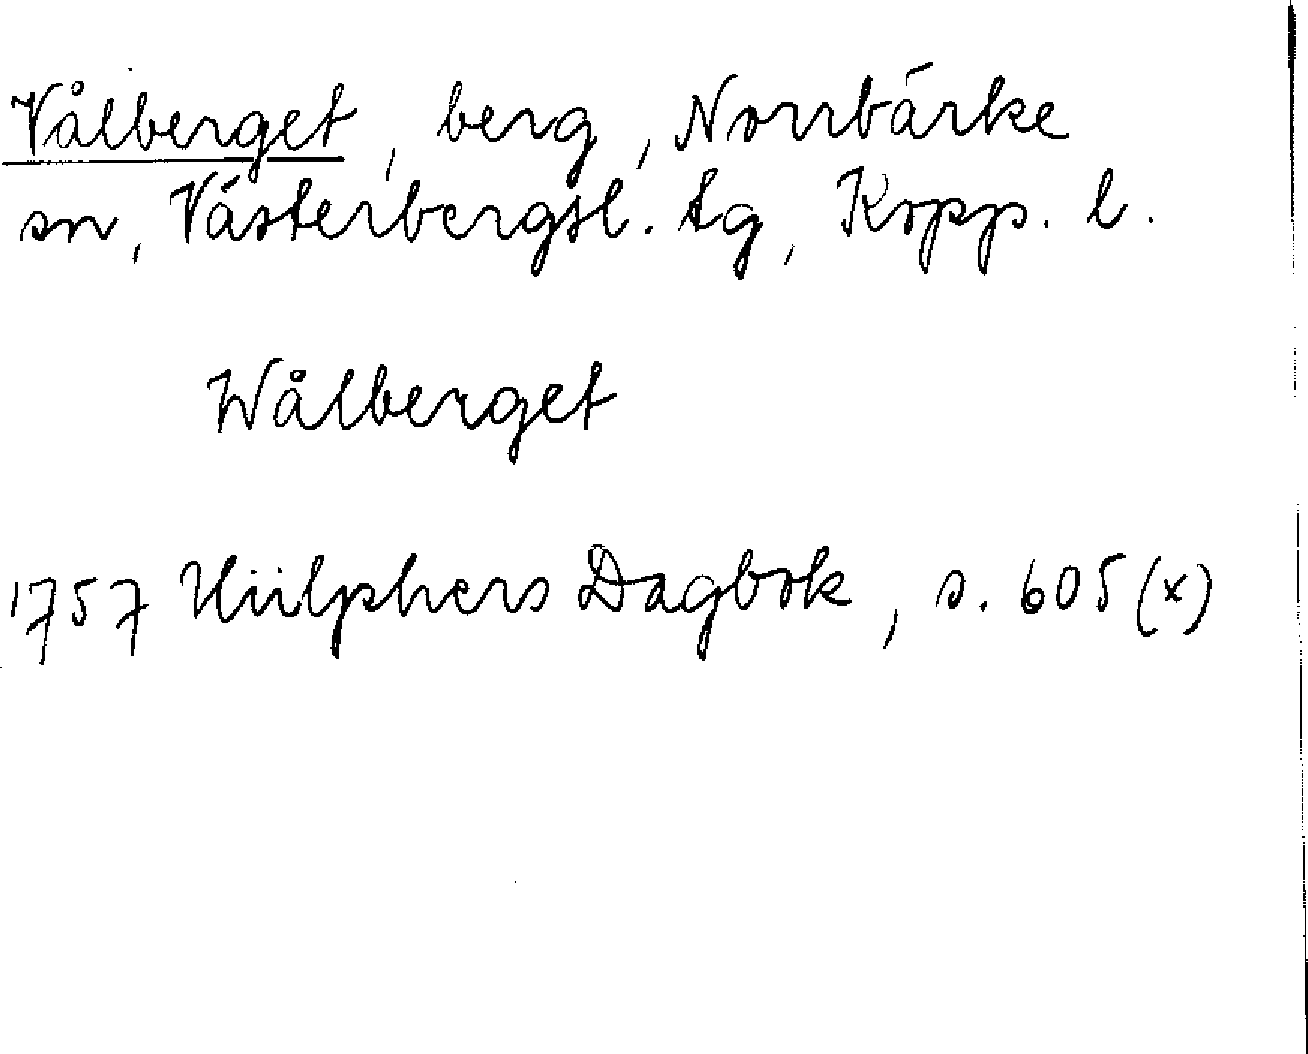 Vålberget, berg, Norrbärke
sn, Västerbergsl. tg, Kopp. l.
Wålberget
1757 Hülphers Dagbok, s. 605 (x)